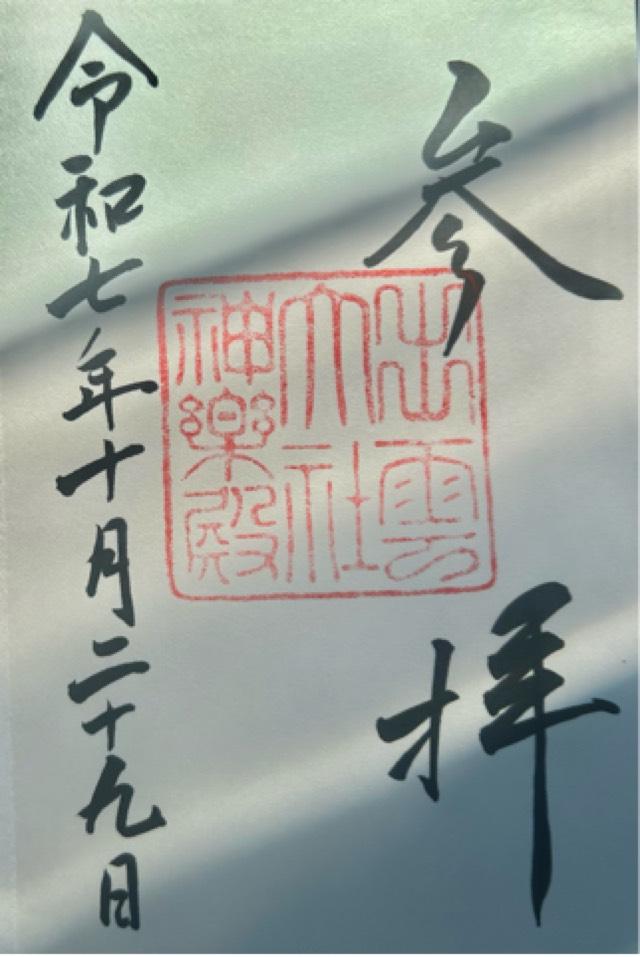 参拝
出雲
大社
神楽殿
令和七年十月二十九日